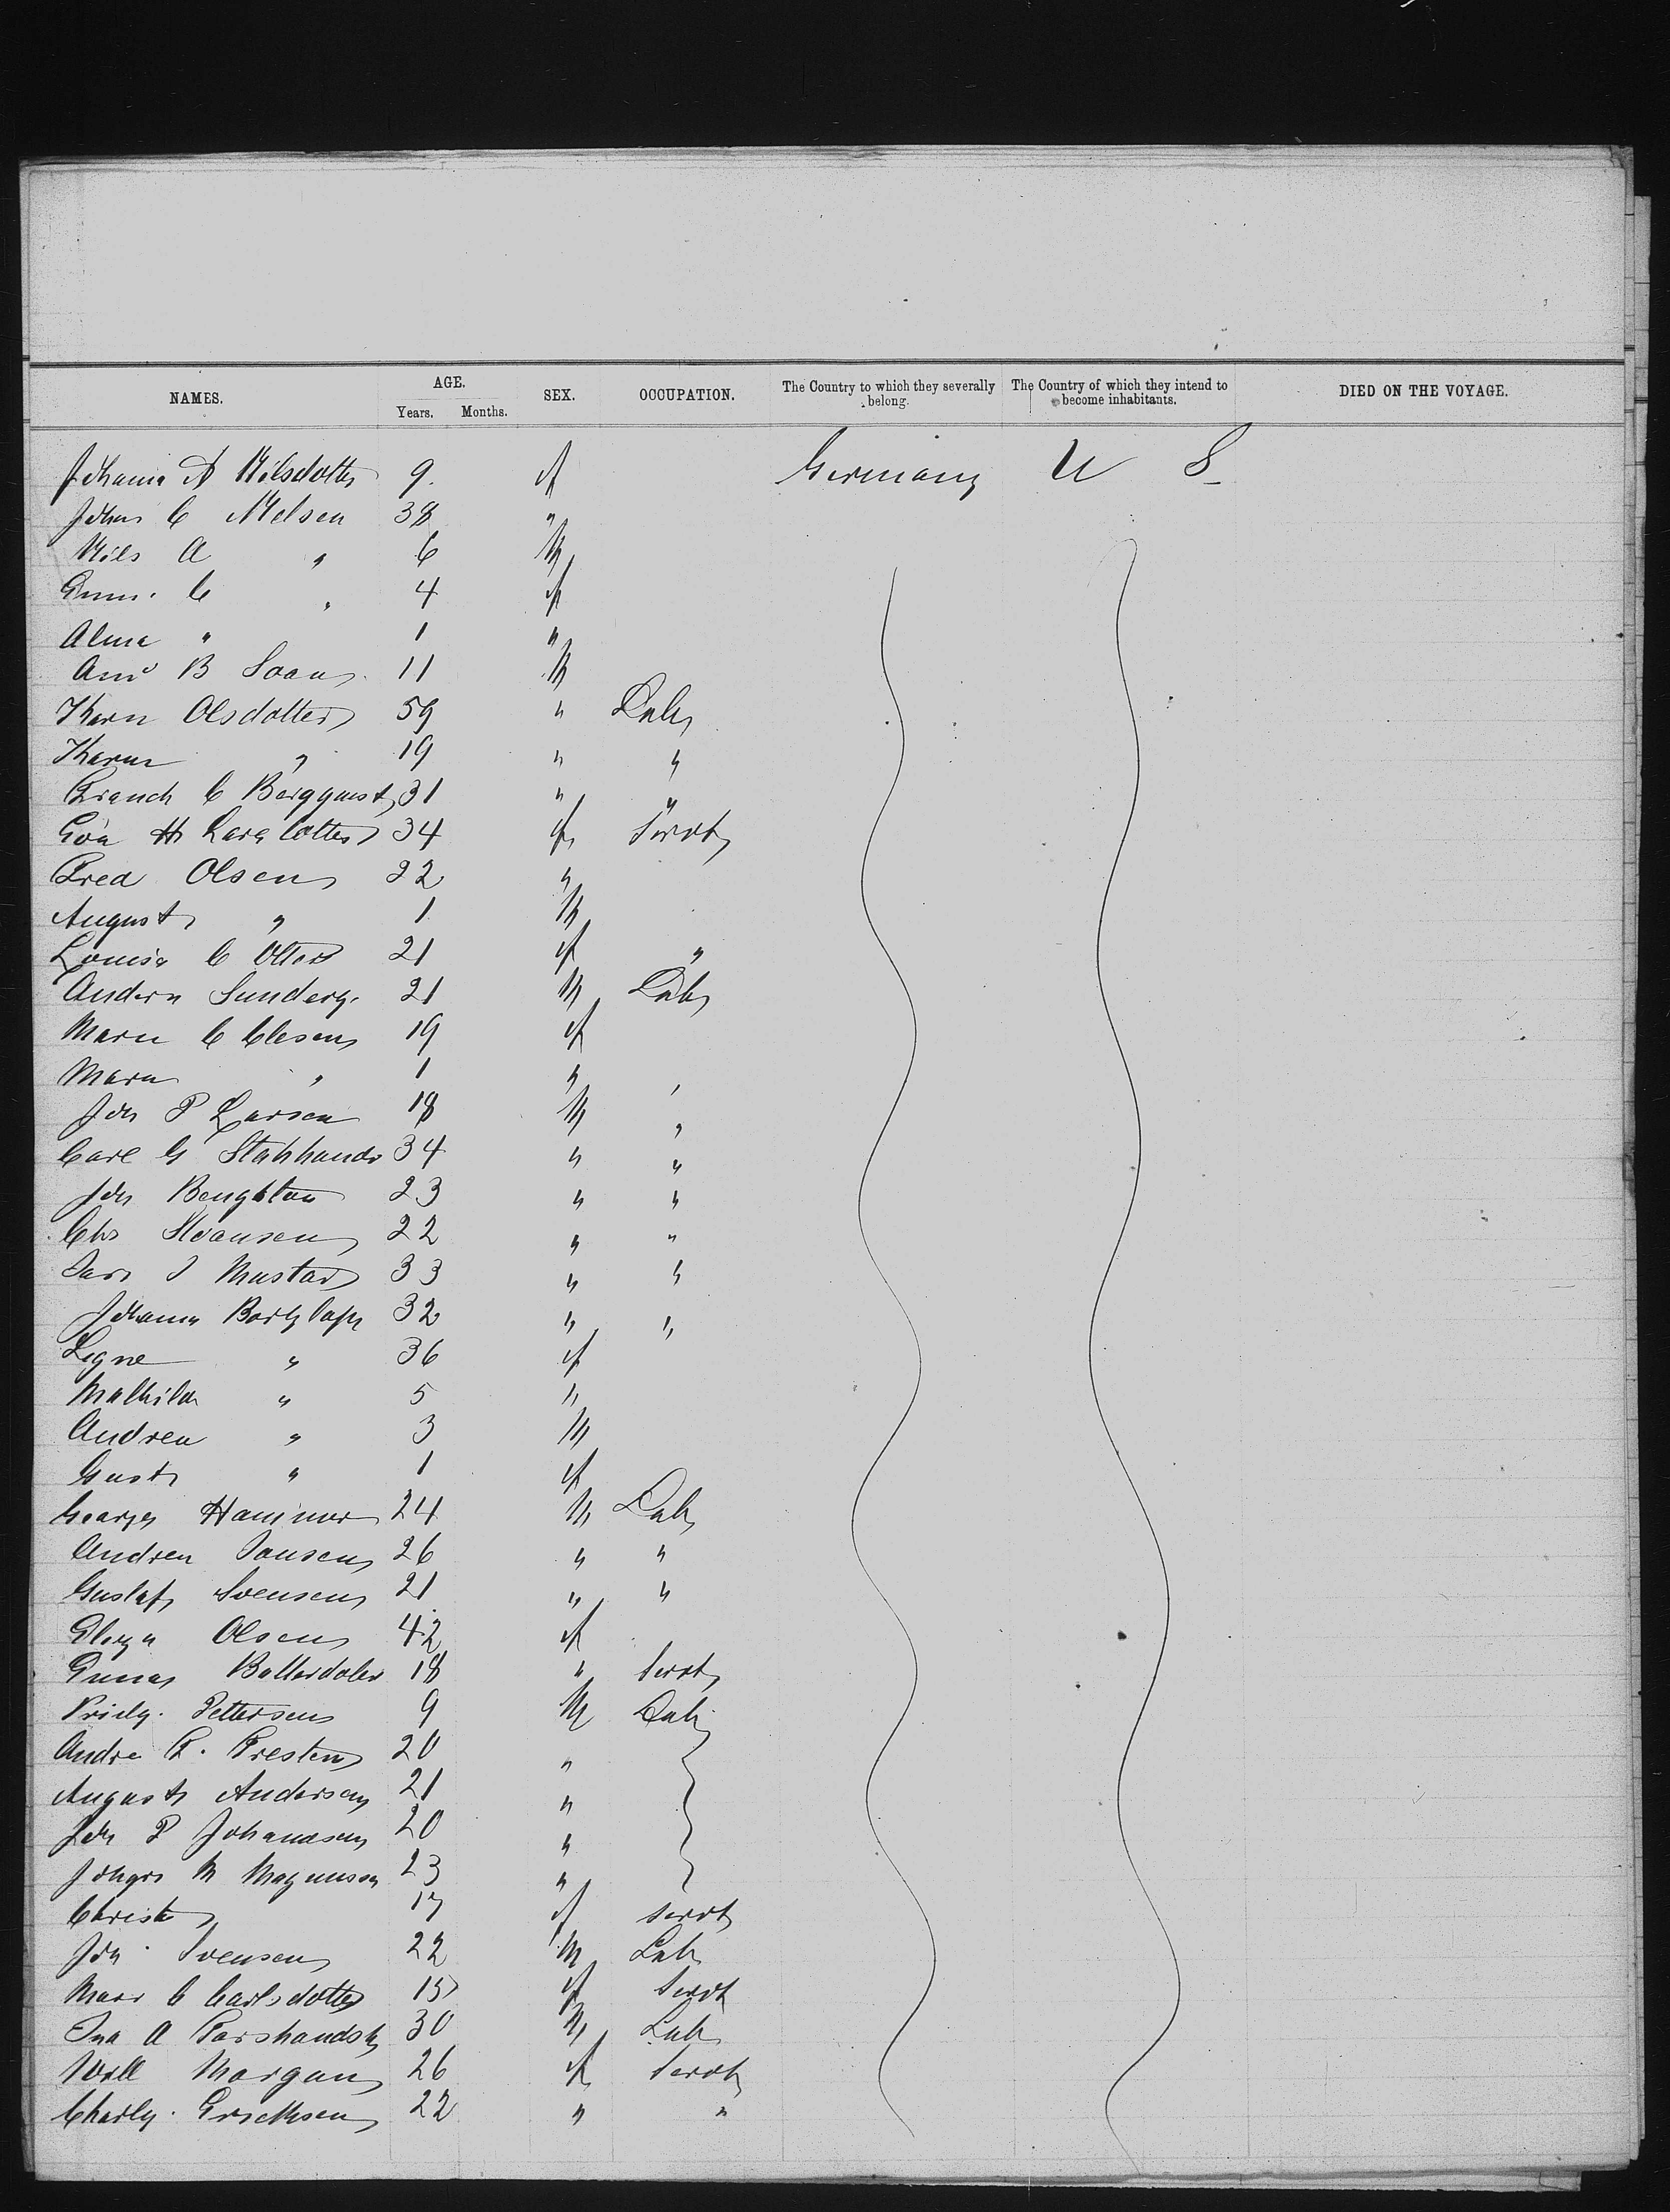 NAMES. AGE. Years. Months. SEX. OCCUPATION. The Country to which they severally belong. The Country of which they intend to become inhabitants. DIED ON THE VOYAGE.
Johania A Nilsdotter 9. f Germany U S
Johan C Nelsen 38 "
Nils A " 6 M
Emm. C " 4 f
Alma " 1 "
And B Soans 11 M
Karn Olsdotter 59 " Lab
Karna " 19 " "
Franch C Bergquest 31 " "
Eva H Lara lotter 34 f Servt
Fred Olsen 22 "
August " 1 M
Louisa C Otters 21 f "
Andern Sunderg. 21 M Lab
Marn C Clesens 19 f
Mara " 1 "
Joh P Larsen 18 M "
Carl G Stahhands 34 " "
Joh Benghton 23 " "
Chs Svansen 22 " "
Lars J Mustad 33 " "
Johanna 32 " "
Signe " 36 f
Mathilda " 5 "
Andrea " 3 M
Gust " 1 f
George Hammer 24 M Lab
Andrea Jansen 26 " "
Gustaf Svensen 21 " "
Olsen 42 f
Emma 18 " Servt
Petersen 9 M Lab
Andre F. Presten 20 "
August Andersen 21 "
Joh P Johansen 20 "
M Magnussen 23 "
Christ 17 f servt
Joh Svensen 22 M Lab
Mari C Carlsdotter 15 f Servt
Ina A 30 M Lab
Will Morgan 26 f Servt
Charly. Ericksen 22 " "